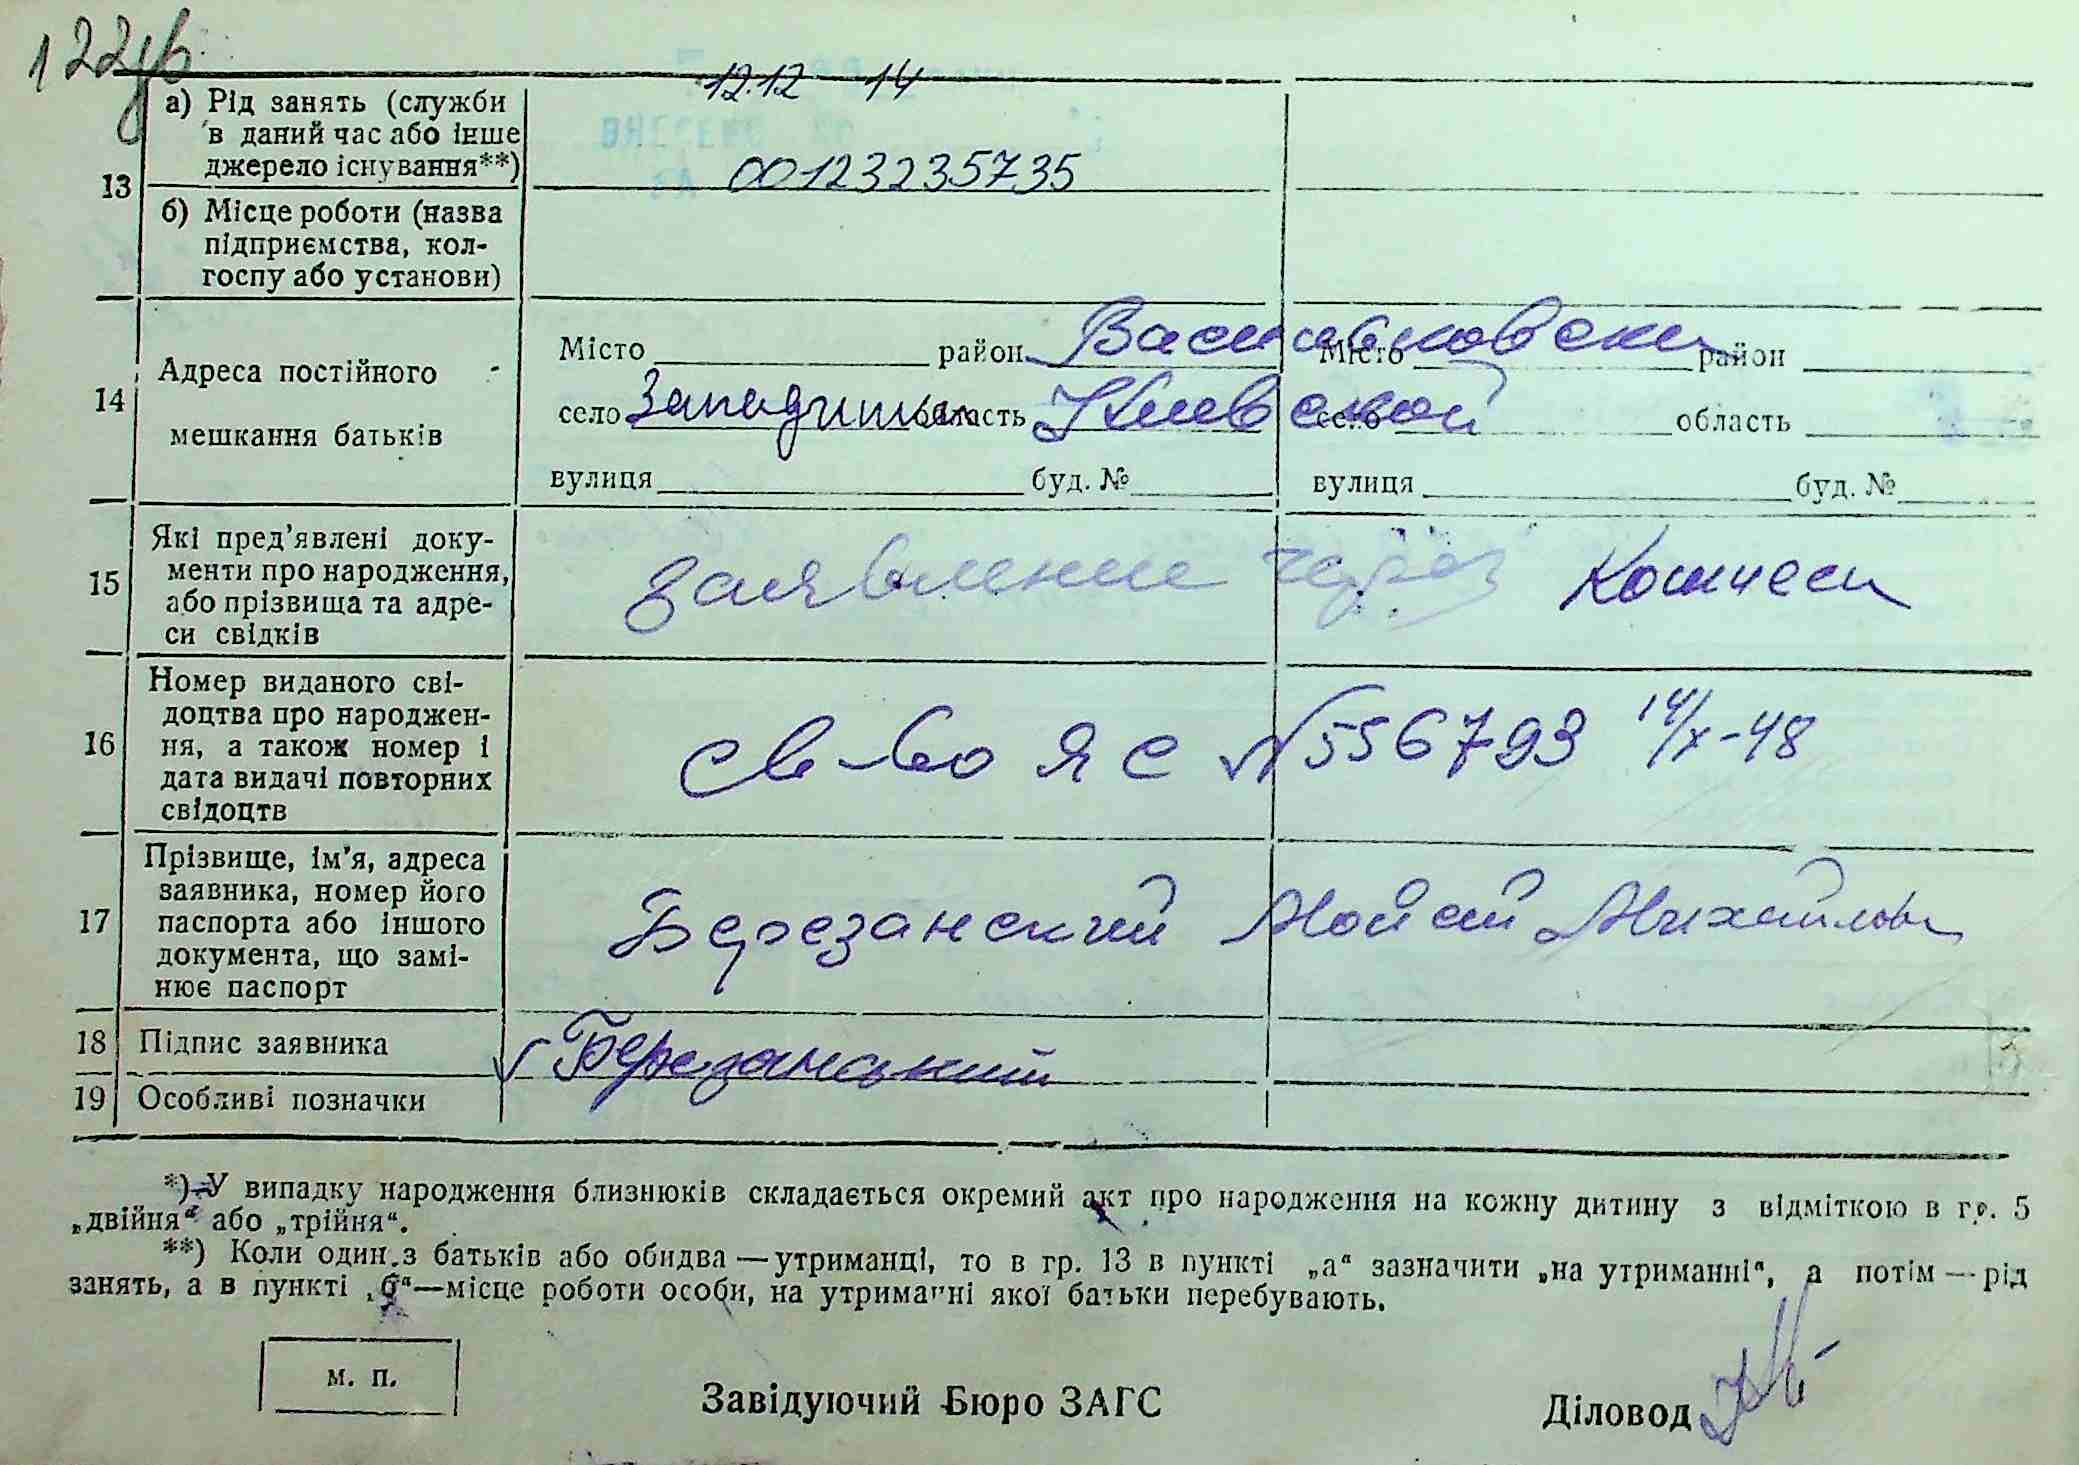 122зв
12.12 14
13 а) Рід занять (служби
в даний час або інше
джерело існування**)
00123235735
б) Місце роботи (назва
підприємства, кол-
госпу або установи)
14 Адреса постійного
мешкання батьків
Місто район Васильковски Місто район
село Западинка область Киевской село область
вулиця буд. № вулиця буд. №
15 Які пред'явлені доку-
менти про народження,
або прізвища та адре-
си свідків
заявление через
16 Номер виданого сві-
доцтва про народжен-
ня, а також номер і
дата видачі повторних
свідоцтв
св-во ЯС № 556793 14/X-48
17 Прізвище, ім'я, адреса
заявника, номер його
паспорта або іншого
документа, що замі-
нює паспорт
Березанский Мойсей Михайлов
18 Підпис заявника Березанський
19 Особливі позначки
*) У випадку народження близнюків складається окремий акт про народження на кожну дитину з відміткою в гр. 5
„двійня“ або „трійня“.
**) Коли один з батьків або обидва — утриманці, то в гр. 13 в пункті „а“ зазначити „на утриманні“, а потім — рід
занять, а в пункті „б“—місце роботи особи, на утриманні якої батьки перебувають.
м. п.
Завідуючий Бюро ЗАГС Діловод